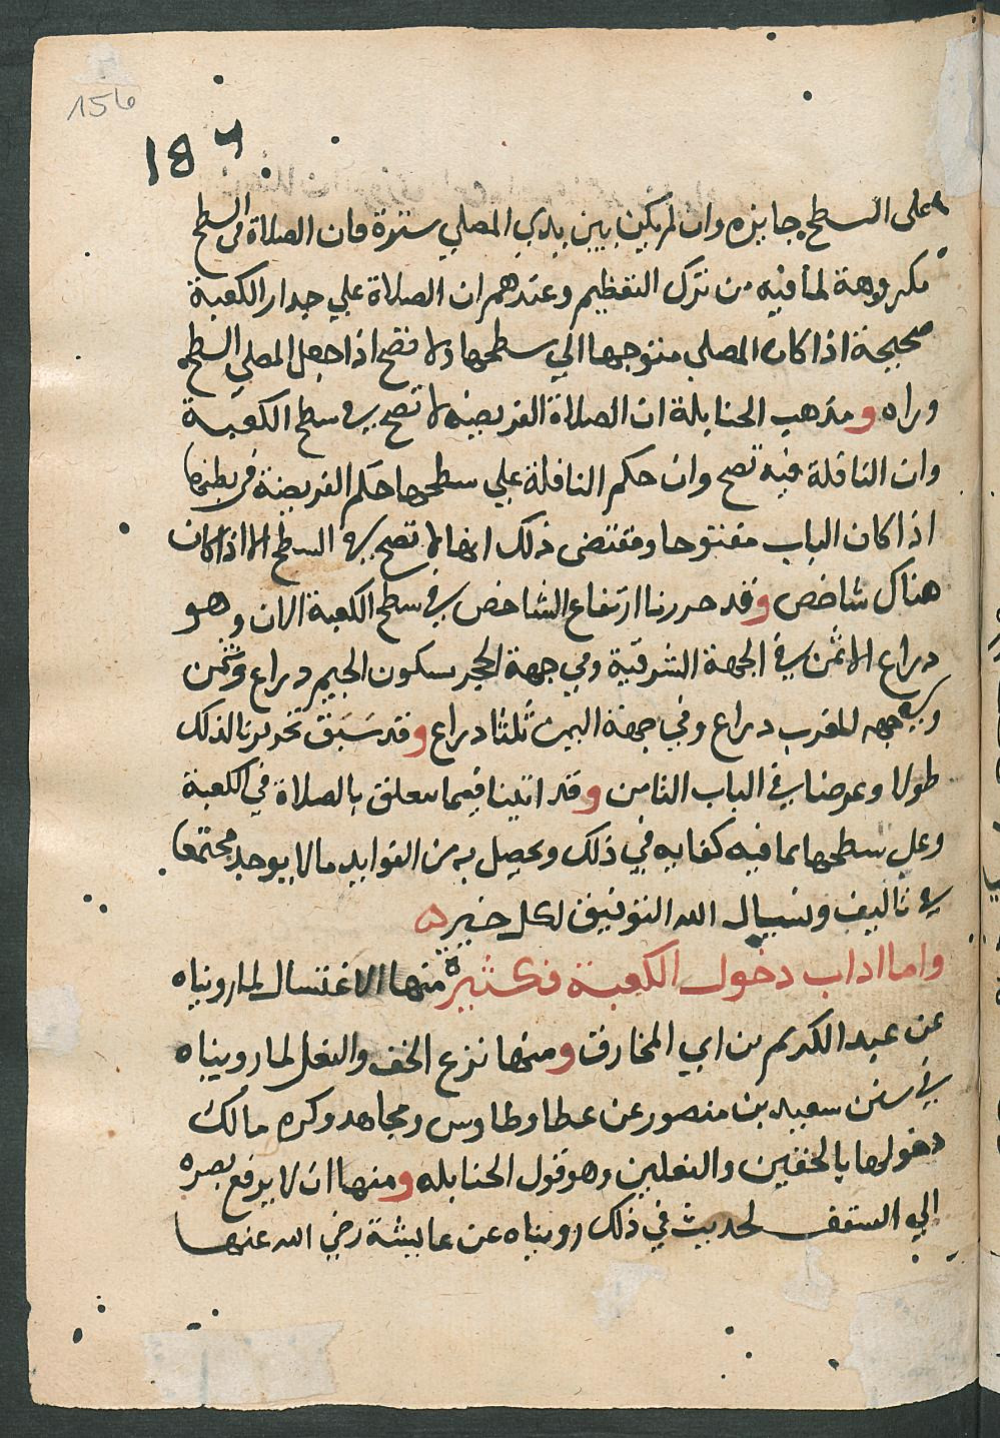 156
186
وعلى السطح جايزه وان لم يكن بين يدي المصلي سترة فان الصلاة في السطح
مكروهة لما فيه من ترك التعظيم وعندهم ان الصلاة علي جدار الكعبة
صحيحة اذا كان المصلي متوجها الي سطحها ولا تصح اذا جعل المصلي السطح
وراه ومذهب الحنابلة ان الصلاة الفريضه لا تصح في سطح الكعبة
وان النافلة فيه تصح وان حكم النافلة علي سطحها حكم الفريضة في بطنها
اذا كان الباب مفتوحا ومقتضى ذلك انها لا تصح في السطح الا اذا كان
هناك شاخص وقد حررنا ارتفاع الشاخص في سطح الكعبة الان وهو
دراع الا ثمن في الجهة الشرقية وفي جهة الحجر بسكون الجيم دراع وثمن
وفي جهه المغرب دراع وفي جهة اليمن ثلثا دراع وقد سبق تحريرنا لذلك
طولا وعرضا في الباب الثامن وقد اتينا فيما يتعلق بالصلاة في الكعبة
وعلي سطحها بما فيه كفايه في ذلك ويحصل به من الفوايد ما لا يوجد مجتمعا
في تاليف ونسيال الله التوفيق لكل خير ه
واما اداب دخول الكعبة فكثيرة منها الاغتسال لما رويناه
عن عبد الكريم بن ابي المخارق ومنها نزع الخف والنعل لما رويناه
في سنن سعيد بن منصور عن عطا وطاوس ومجاهد وكره مالك
دخولها بالخفين والنعلين وهو قول الحنابله ومنها ان لا يرفع بصره
الي السقف لحديث في ذلك رويناه عن عايشة رضي الله عنها